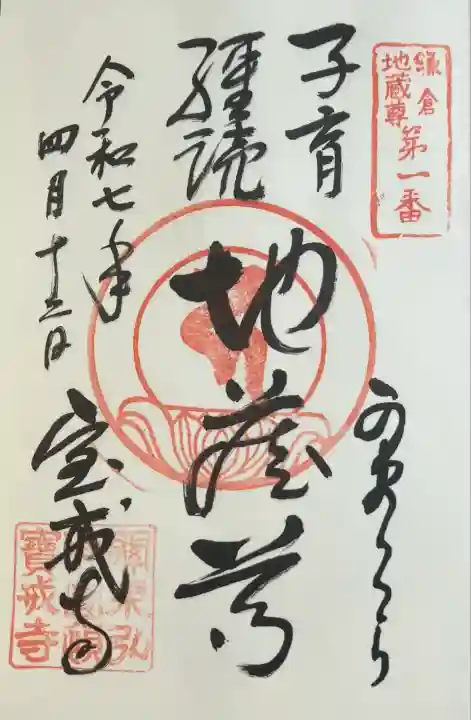 鎌倉
地蔵尊
第一番
かまくら
子育
経読
地蔵尊
宝戒寺
令和七年
四月十三日
寶戒寺